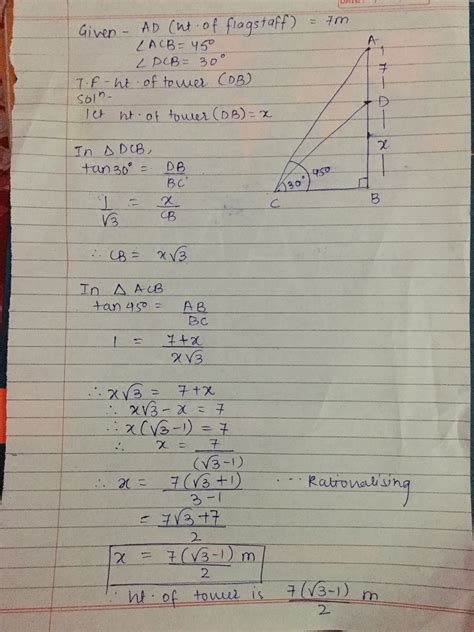 DATE:
Given - AD (ht. of flagstaff) = 7m
∠ACB = 45°
∠DCB = 30°
T.F - ht. of tower (DB)
Solⁿ-
let ht. of tower (DB) = x
A
7
D
x
45°
30°
C
B
In △ DCB,
tan 30° = DB/BC
1/√3 = x/CB
∴ CB = x√3
In △ ACB
tan 45° = AB/BC
1 = 7+x/x√3
∴ x√3 = 7+x
∴ x√3 - x = 7
∴ x(√3-1) = 7
∴ x = 7/(√3-1)
∴ x = 7(√3+1)/3-1 ... Rationalising
= 7√3+7/2
x = 7(√3-1)/2 m
∴ ht. of tower is 7(√3-1)/2 m